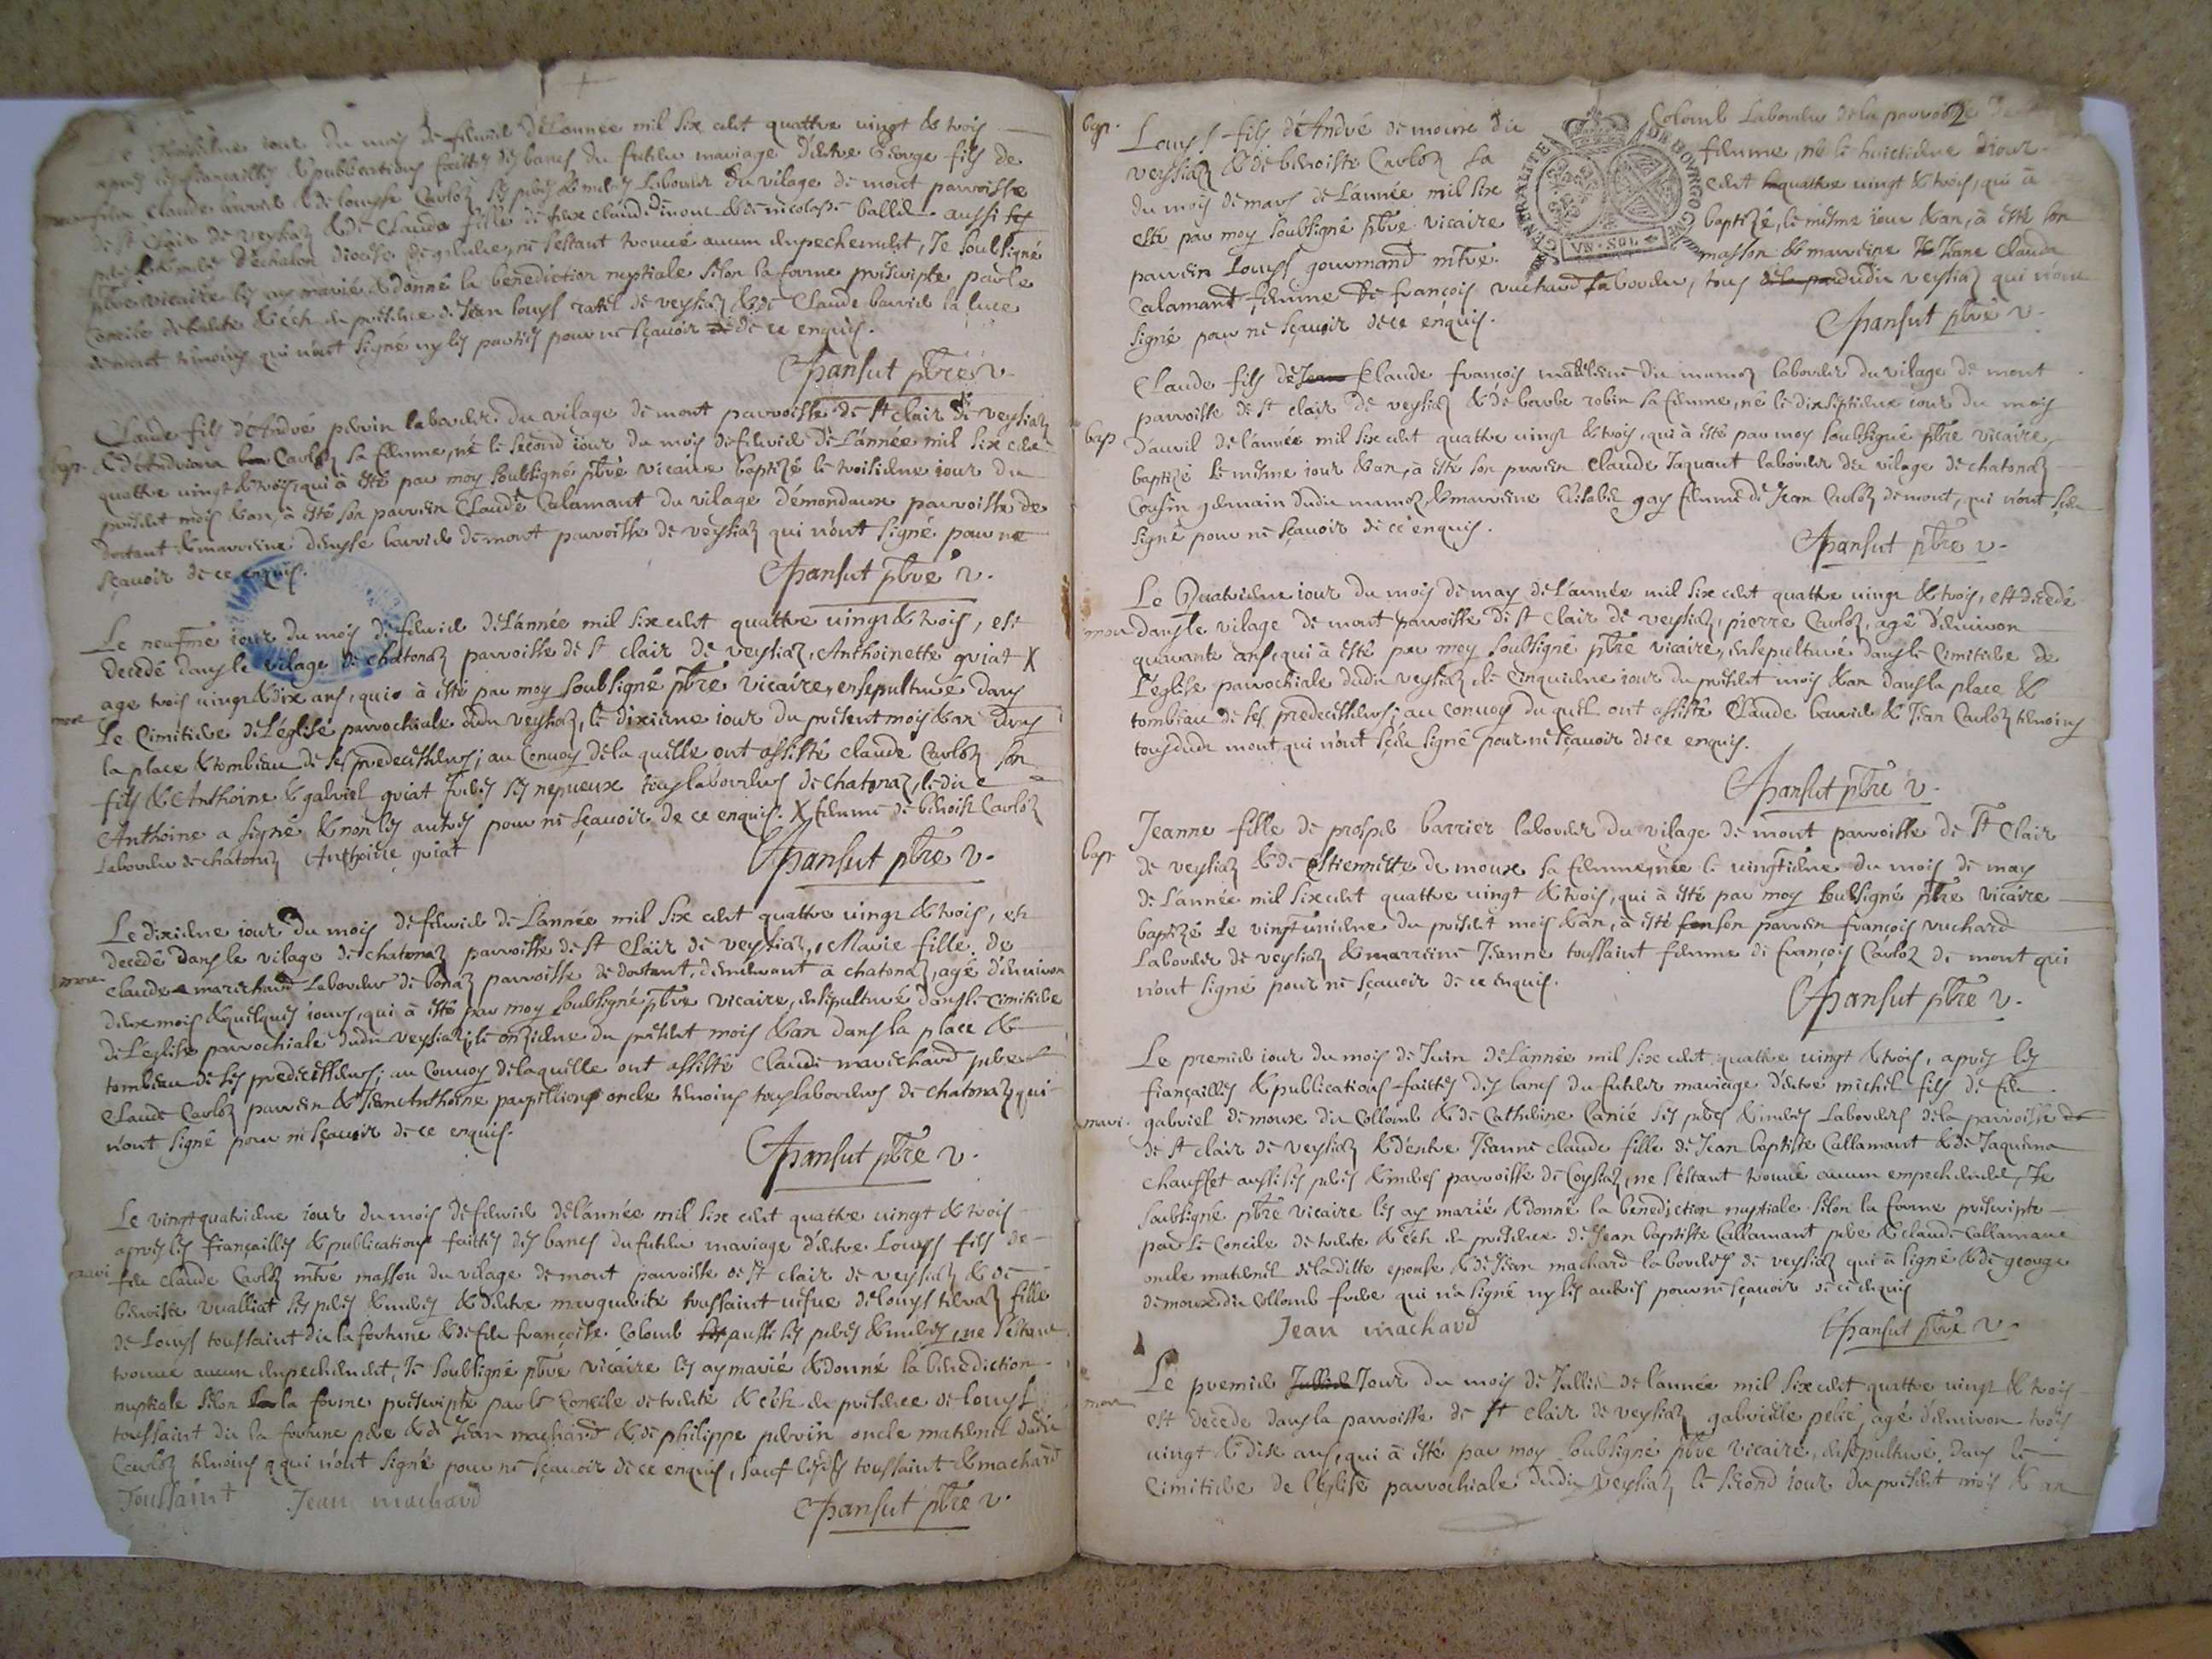 iour du mois de febvrier de L'année mil six cent quattre vingt & trois
apres les fiançailles & publications faittes des bancs du futeur mariage d'entre George fils de
feu Claude barrier & de Louyse Carloz ses peres & meres Laboureur du vilage de mont parroisse
de st Clair de veysiaz & de Clauda fille de feu claude & de nicolasse ballet aussi ses
peres & meres d'echalon, diocese de geneve, ne s'estant trouvé aucun empechement, Je soubsigné
pbre vicaire les ay marié & donné la benediction nuptiale selon la forme prescripte par le
Concile de trente & c'est en presence de Jean Louys ratel de veysiaz & de Claude barrier la luce
de mont temoins qui n'ont signé ny les parties pour ne sçavoir de ce enquis.
Pansut pbre v.
bap.
Claude fils d'André perrin laboureur du vilage de mont parroisse de st clair de veysiaz
& d'Andriana Carloz sa femme, né le second iour du mois de febvrier de L'année mil six cent
quattre vingt & trois, qui à esté par moy soubsigné pbre vicaire baptizé le troisieme iour du
present mois & an, à esté son parrein Claude Calamant du vilage d'emondaux parroisse de
dortant & marreine denyse barrier de mont parroisse de veysiaz qui n'ont signé pour ne
sçavoir de ce enquis.
Pansut pbre v.
mort
Le neufme iour du mois de febvrier de L'année mil six cent quattre vingt & trois, est
decedé dans le vilage de chatonaz parroisse de st clair de veysiaz, Anthoinette guiat X
agé trois vingt & dix ans, qui à esté par moy soubsigné pbre vicaire, ensepulturé dans
le Cimitiere de L'église parrochiale dudit veysiaz, le dixieme iour du present mois & an dans
la place & tombeau de ses predecesseurs; au Convoy de la quelle ont assisté claude Carloz son
fils & Anthoine & gabriel guiat freres ses nepveux tous laboureurs de chatonaz, le dit
Anthoine a signé & non les autres pour ne sçavoir de ce enquis. X femme de benoist Carloz
Laboureur de chatonaz Anthoine guiat
Pansut pbre v.
mort
Le dixieme iour du mois de febvrier de L'année mil six cent quattre vingt & trois, est
decedé dans le vilage de chatonaz parroisse de st Clair de veysiaz, Marie fille de
claude marechand Laboureur de bonaz parroisse de dortant, demeurant à chatonaz, agé d'environ
deux mois & quelques iours, qui à esté par moy soubsigné pbre vicaire, ensepulturé dans le cimitiere
de L'eglise parrochiale dudit veysiaz, le onzieme du present mois & an dans la place &
tombeau de ses predecesseurs; au Convoy de laquelle ont assisté Claude marechand pere
Claude Carloz parrein & Jean Anthoine papillion oncle temoins tous laboureurs de chatonaz qui
n'ont signé pour ne sçavoir de ce enquis.
Pansut pbre v.
mari
Le vingtquatrieme iour du mois de febvrier de l'année mil six cent quattre vingt & trois
apres les fiançailles & publications faittes des bancs du futeur mariage d'entre Louys fils de
feu claude Carloz mtre masson du vilage de mont parroisse de st clair de veysiaz & de
benoiste vualliat ses peres & meres & d'entre marguerite toussaint vefue de Louys fille
de Louys toussaint dit la fortune & de feu françoise Colomb aussi ses peres & meres, ne s'estant
trouvé aucun empechement, Je soubsigné pbre vicaire les ay marié & donné la benediction
nuptiale selon la forme prescripte par le Concile de trente & c'est en presence de Louys
toussaint dit la fortune pere & de Jean machard & de philippe perrin oncle maternel dudit
Carloz temoins qui n'ont signé pour ne sçavoir de ce enquis, sauf lesdits toussaint & machard
Toussaint Jean machard
Pansut pbre v.
2
GENERALITE DE BOVRGOGNE
VN·SOL
bap.
Louys fils d'André de moure dit Colomb Laboureur de la parroisse de
veysiaz & de benoiste Carloz sa femme, né le huictieme iour
du mois de mars de L'année mil six cent quattre vingt & trois, qui à
esté par moy soubsigné pbre vicaire baptizé, le mesme iour & an, à esté son
parrein Louys gourmand mtre masson & marreine Jeane Claude
Calamant femme de françois vuchard laboureur, tous dudit veysiaz qui n'ont
signé pour ne sçavoir de ce enquis.
Pansut pbre v.
bap
Claude fils de Jean Claude françois dit mamoz laboureur du vilage de mont
parroisse de st clair de veysiaz & de barbe robin sa femme, né le dixseptieme iour du mois
d'avril de l'année mil six cent quattre vingt & trois, qui à esté par moy soubsigné pbre vicaire,
baptizé le mesme iour & an, à esté son parrein Claude Jaquant laboureur du vilage de chatonaz
Cousin germain dudit mamoz, & marreine Elisabet gay femme de Jean Carloz de mont, qui n'ont sceu
signé pour ne sçavoir de ce enquis.
Pansut pbre v.
mort
Le Quatrieme iour du mois de may de L'année mil six cent quattre vingt & trois, est decedé
dans le vilage de mont parroisse de st clair de veysiaz, pierre Carloz, agé d'environ
quarante ans, qui à esté par moy soubsigné pbre vicaire, ensepulturé dans le Cimitiere de
L'eglise parrochiale dudit veysiaz le Cinquieme iour du present mois & an dans la place &
tombeau de ses predecesseurs; au convoy duquel ont assisté Claude barrier & Jean Carloz temoins
tous dudit mont qui n'ont sceu signé pour ne sçavoir de ce enquis.
Pansut pbre v.
bap.
Jeanne fille de prosper barrier laboureur du vilage de mont parroisse de St Clair
de veysiaz & de Estiennette de moure sa femme, née le vingtieme du mois de may
de L'année mil six cent quattre vingt & trois, qui à esté par moy soubsigné pbre vicaire
baptizé le vingtunieme du present mois & an, à esté son parrein françois vuchard
Laboureur de veysiaz & marreine Jeanne toussaint femme de françois Carloz de mont qui
n'ont signé pour ne sçavoir de ce enquis.
Pansut pbre v.
mari.
Le premier iour du mois de Juin de L'année mil six cent quattre vingt & trois, apres les
fiançailles & publications faittes des bancs du futeur mariage d'entre michel fils de feu
gabriel de moure dit Collomb & de Catherine Cancé ses peres & meres Laboureurs de la parroisse de
de st clair de veysiaz & d'entre Jeanne claude fille de Jean baptiste Callamant & de Jaquema
chauffet aussi ses peres & meres parroisse de Coysiaz, ne s'estant trouvé aucun empechement, Je
soubsigné pbre vicaire les ay marié & donné la benediction nuptiale selon la forme prescripte
par le Concile de trente & c'est en presence de Jean baptiste Callamant pere & claude Callamant
oncle maternel de la ditte epouse & de Jean machard laboureur de veysiaz qui à signé & de george
de moure dit Collomb frere qui n'a signé ny les autres pour ne sçavoir de ce enquis
Jean machard
Pansut pbre v.
mort
Le premier Jullied Jour du mois de Jullied de l'année mil six cent quattre vingt & trois
est decede dans la parroisse de st Clair de veysiaz gabrielle pelié, agé d'environ trois
vingt & dix ans, qui à esté par moy soubsigné pbre vicaire, ensepulturé, dans le
Cimitiere de l'eglise parrochiale dudit veysiaz le second iour du present mois & an